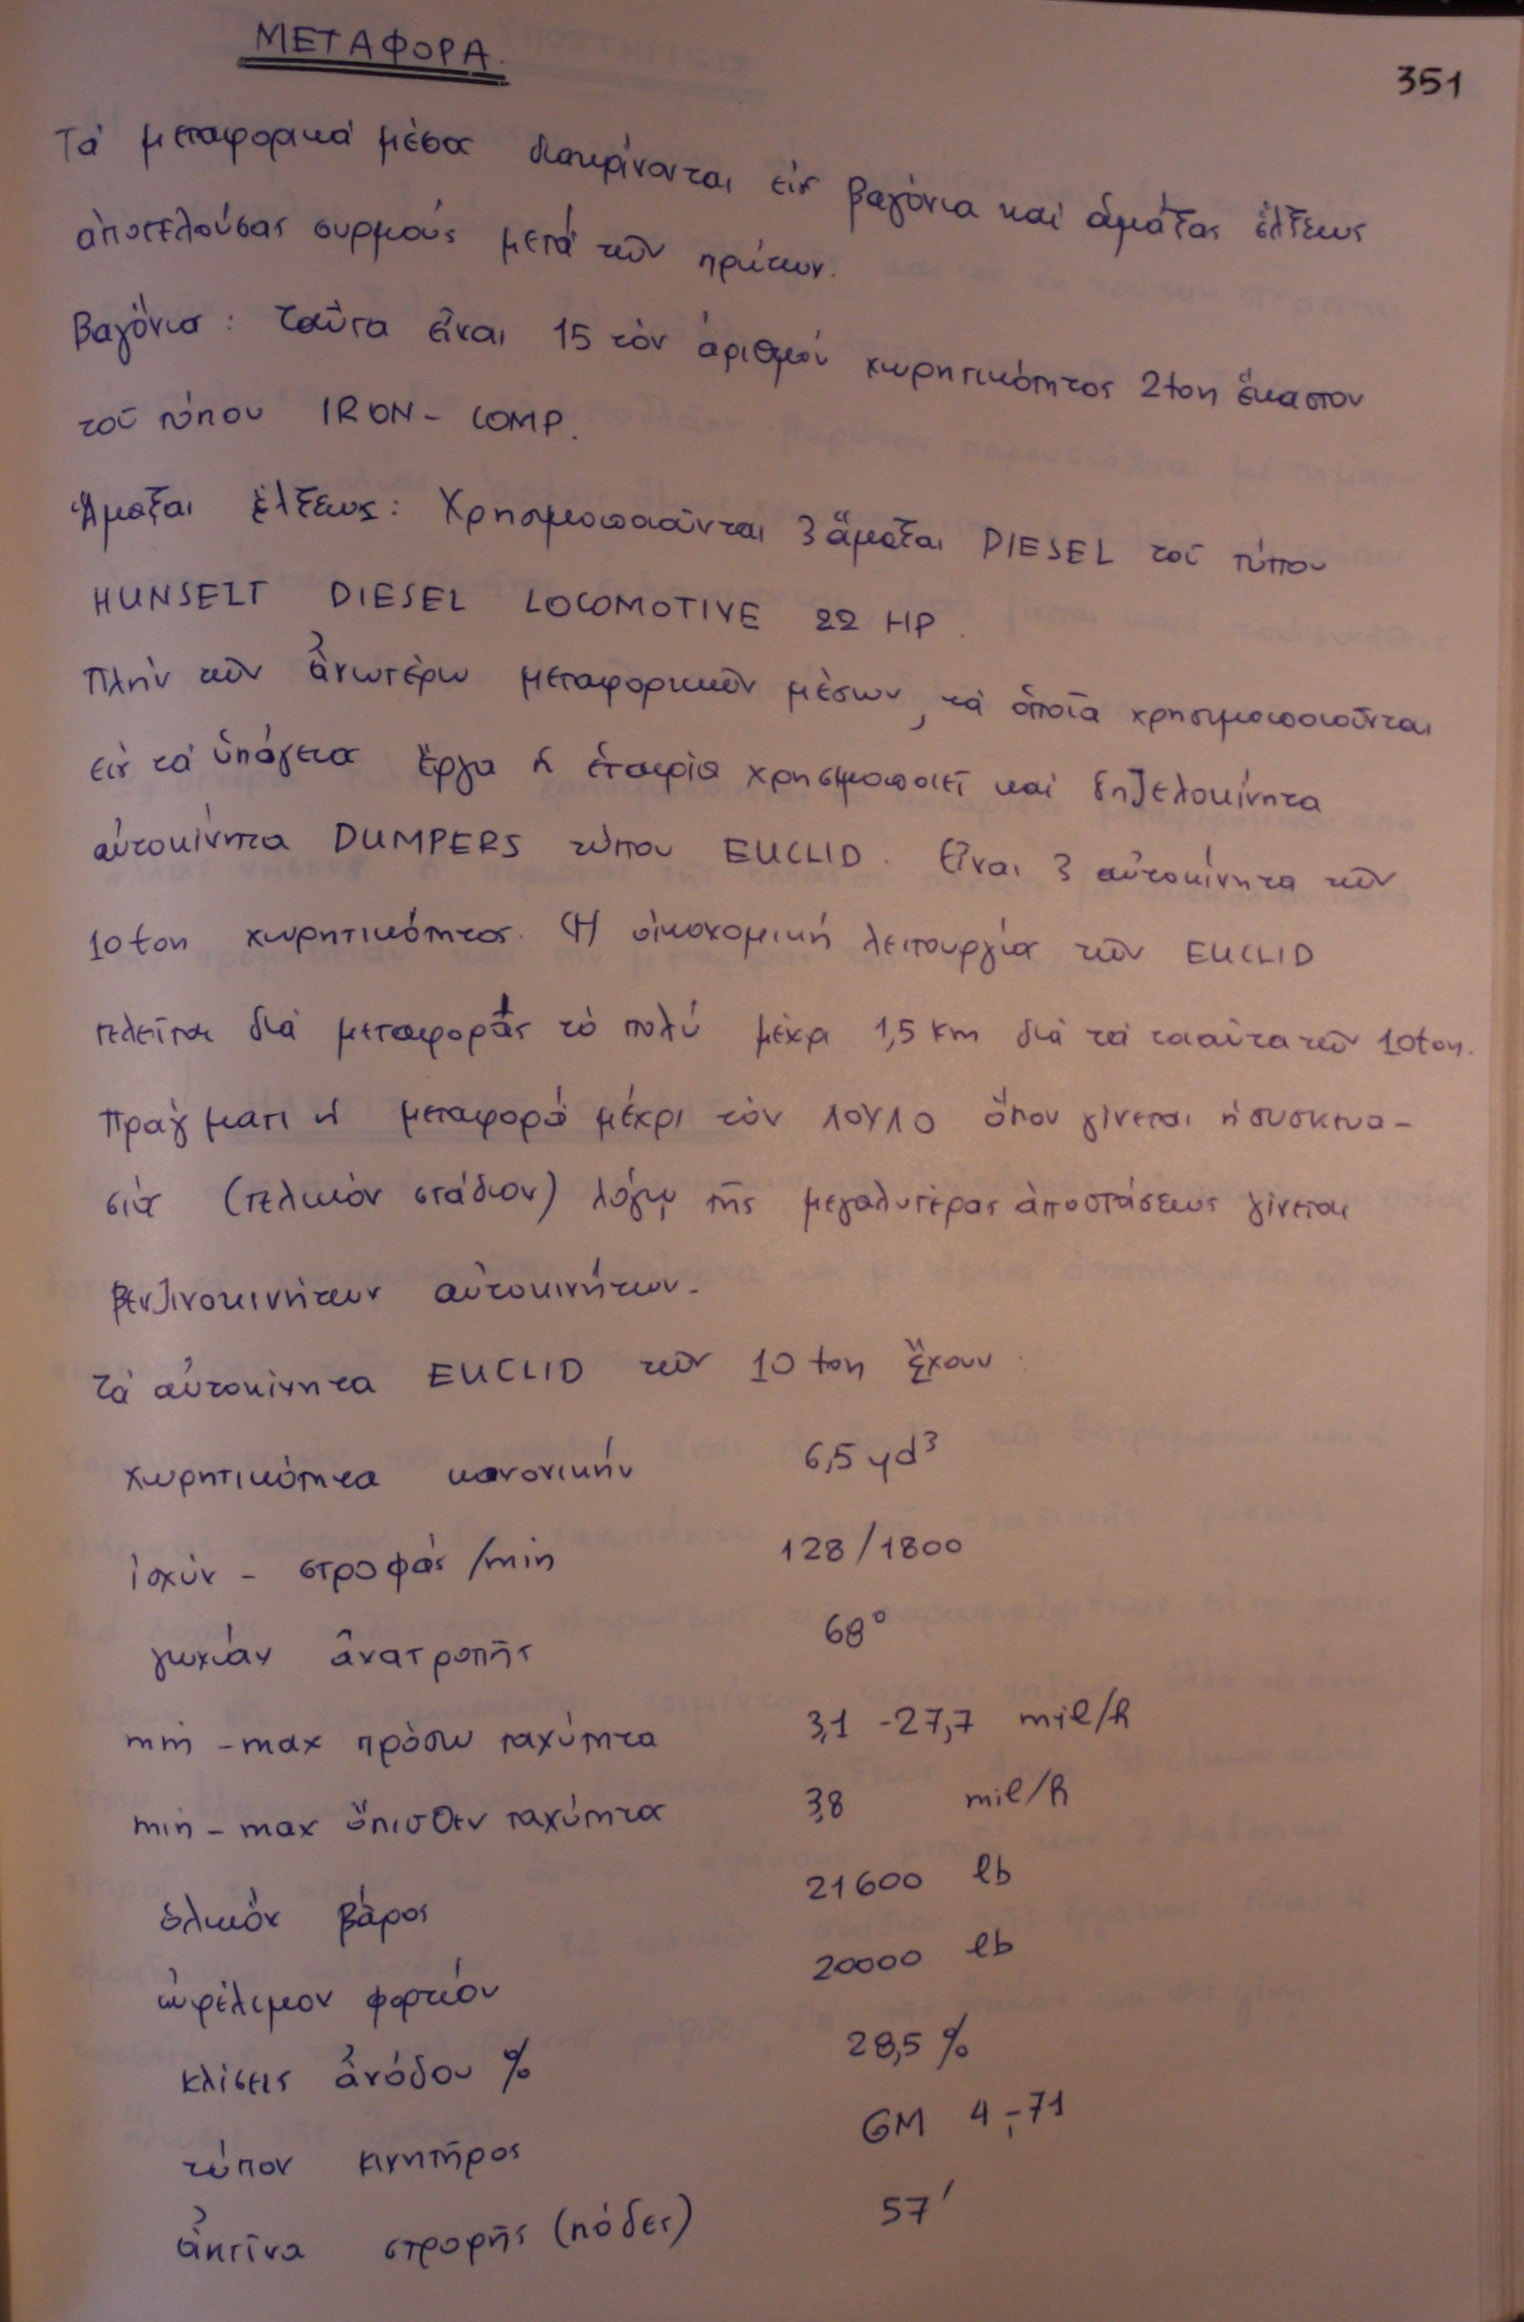 ΜΕΤΑΦΟΡΑ.
351
Τά μεταφορικά μέσα διακρίνονται είς βαγόνια καί ἁμάξας ἕλξεως
ἀποτελούσας συρμούς μετά τῶν πρώτων.
Βαγόνια : Ταῦτα εἶναι 15 τόν ἀριθμόν χωρητικότητος 2ton ἕκαστον
τοῦ τύπου IRON - COMP.
Ἅμαξαι ἕλξεως : Χρησιμοποιοῦνται 3 ἅμαξαι DIESEL τοῦ τύπου
HUNSELT DIESEL LOCOMOTIVE 22 HP.
Πλήν τῶν ἀνωτέρω μεταφορικῶν μέσων, τά ὁποῖα χρησιμοποιοῦνται
εἰς τά ὑπόγεια ἔργα ἡ ἑταιρία χρησιμοποιεῖ καί δηζελοκίνητα
αὐτοκίνητα DUMPERS τύπου EUCLID. Εἶναι 3 αὐτοκίνητα τῶν
10ton χωρητικότητος. Ἡ οἰκονομική λειτουργία τῶν EUCLID
τελεῖται διά μεταφοράς τό πολύ μέχρι 1,5 km διά τά τοιαῦτα τῶν 10ton.
Πράγματι ἡ μεταφορά μέχρι τόν ΛΟΥΛΟ ὅπου γίνεται ἡ συσκευα-
σία (τελικόν στάδιον) λόγῳ τῆς μεγαλυτέρας ἀποστάσεως γίνεται
βενζινοκινήτων αὐτοκινήτων.
Τά αὐτοκίνητα EUCLID τῶν 10 ton ἔχουν :
χωρητικότητα κανονικήν 6,5 yd³
ἰσχύν - στροφάς /min 128/1800
γωνίαν ἀνατροπῆς 68°
min - max πρόσω ταχύτητα 3,1 - 27,7 mil/h
min - max ὄπισθεν ταχύτητα 3,8 mil/h
ὁλικόν βάρος 21600 lb
ὠφέλιμον φορτίον 20000 lb
κλίσεις ἀνόδου % 28,5 %
τύπον κινητῆρος GM 4-71
ἀκτῖνα στροφῆς (πόδες) 57'